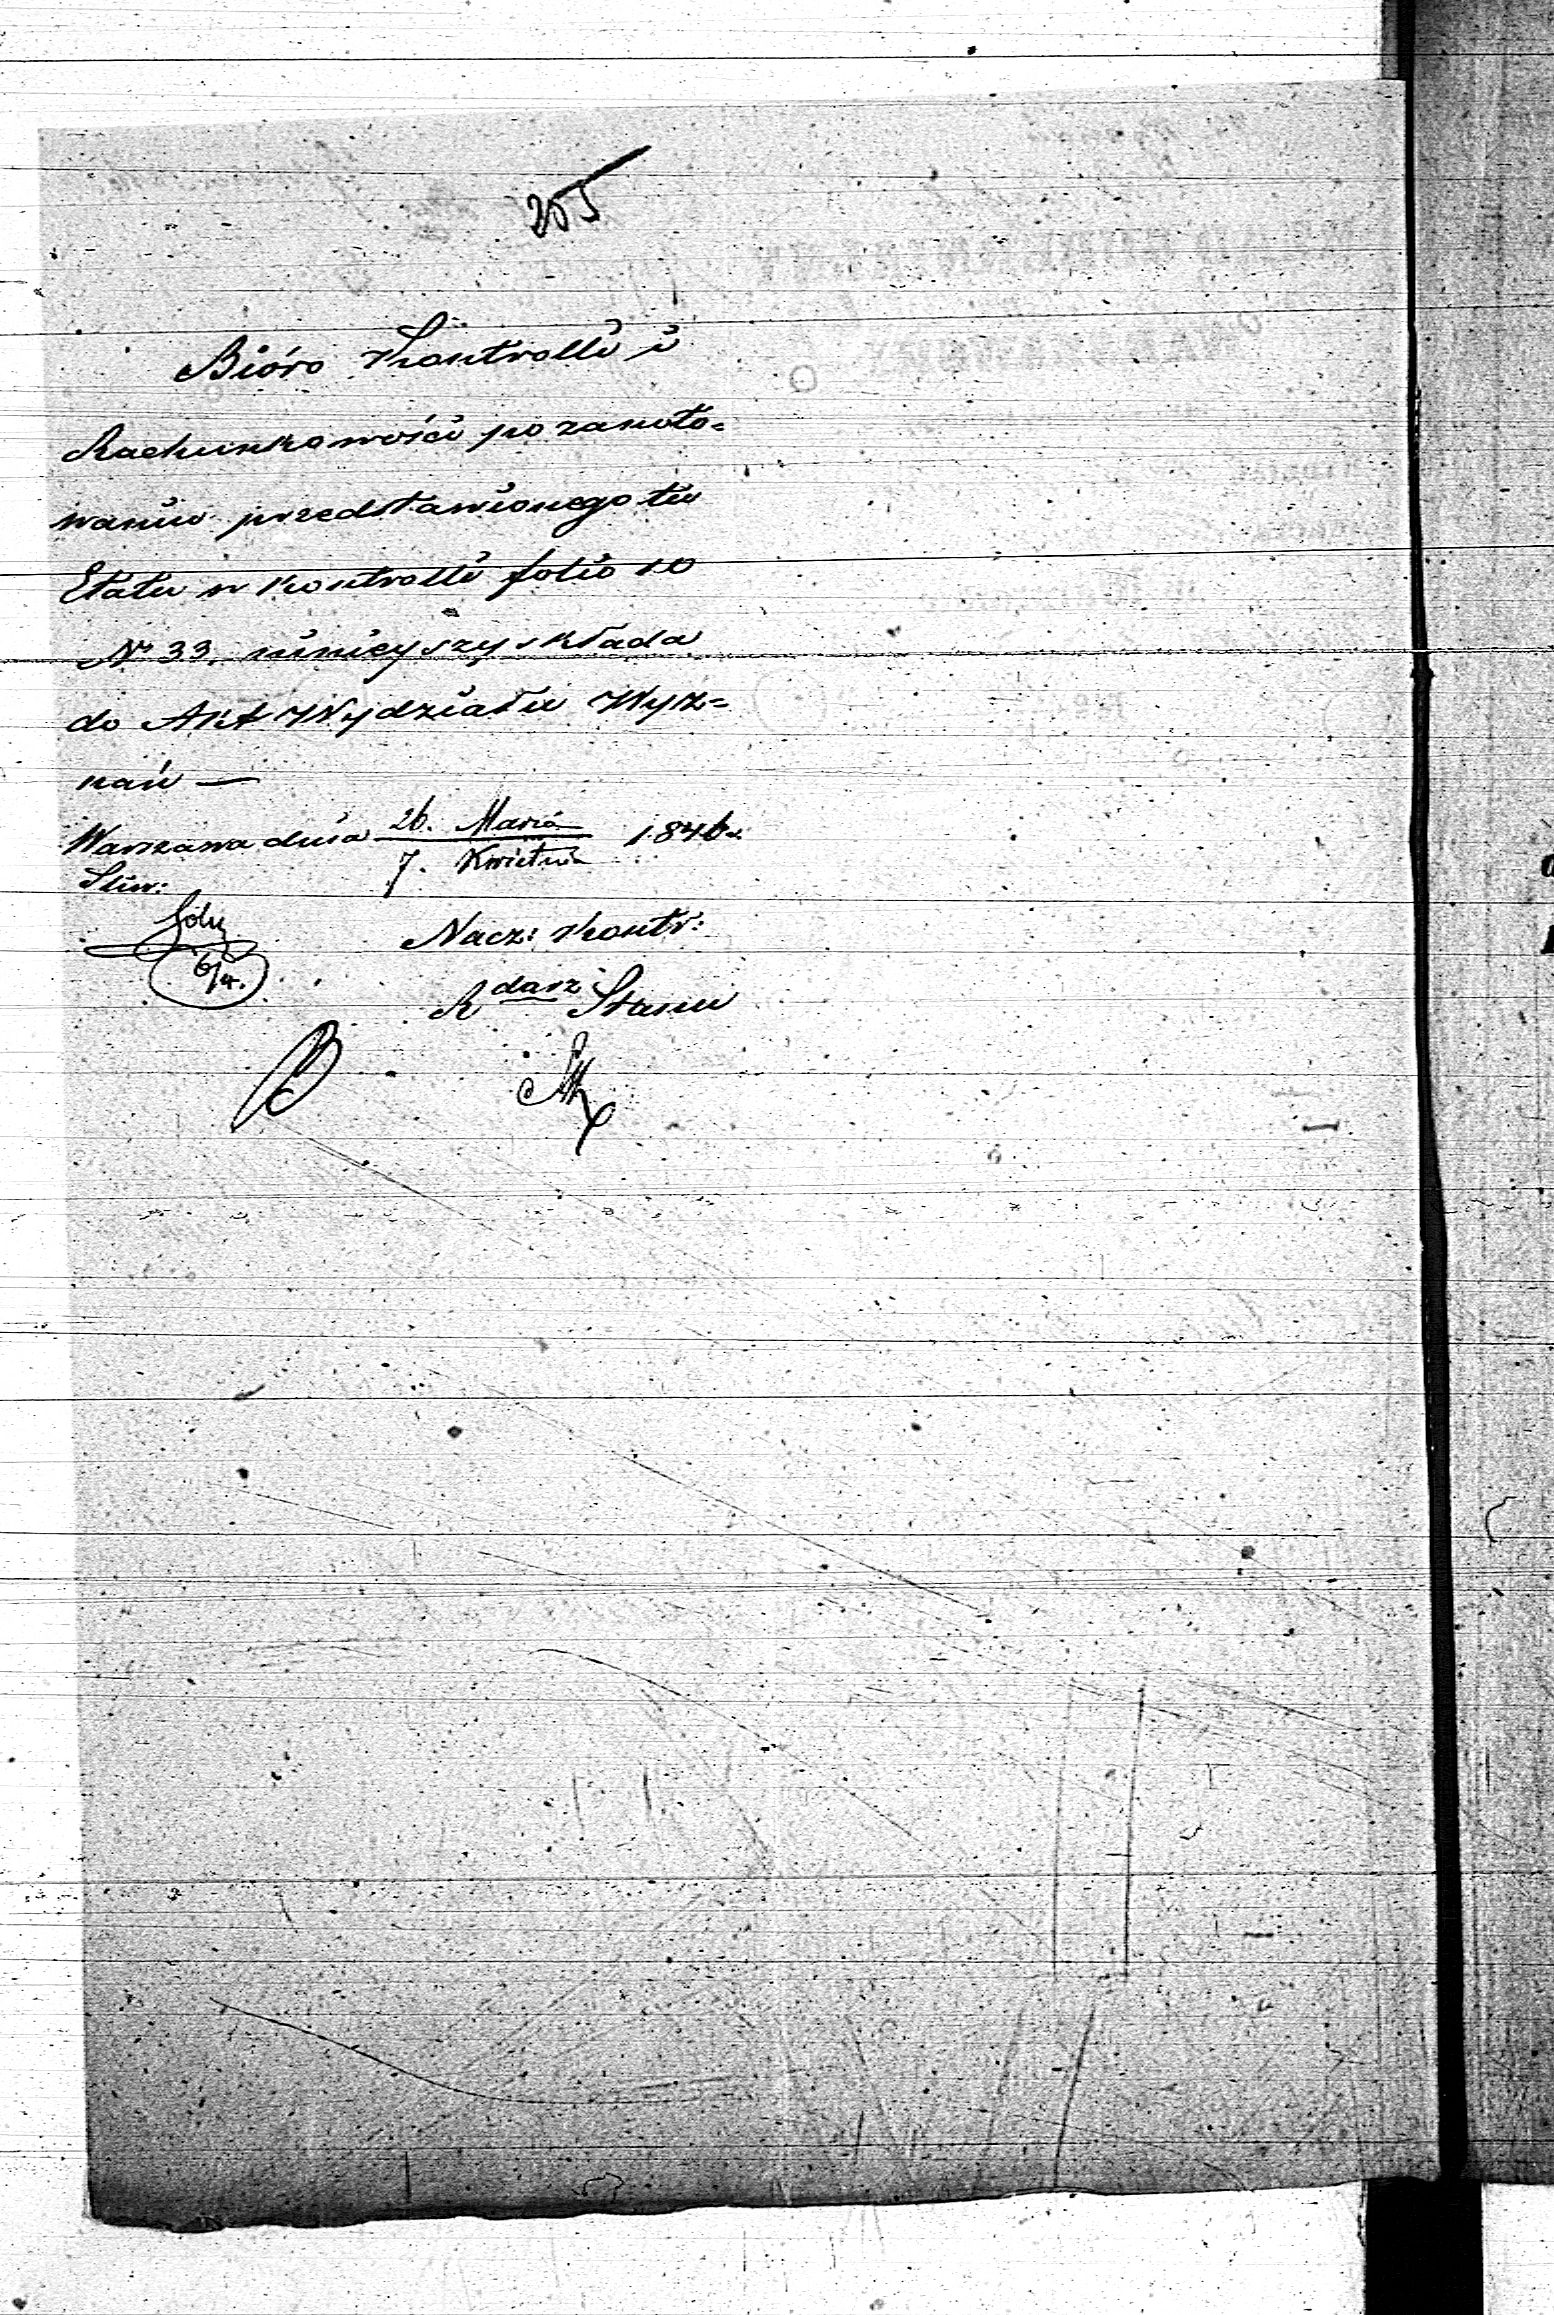 205
Bióro Kontrolli i
Rachunkowości po zanoto=
waniu przedstawionego tu
Etatu w kontrolli folio 10
N° 33. niniejszy składa
do Akt Wydziału Wyz=
nań —
Warszawa dnia 26. Marca / 7. Kwietnia 1846.
Nacz: Kontr:
R darz Stanu
6/4.